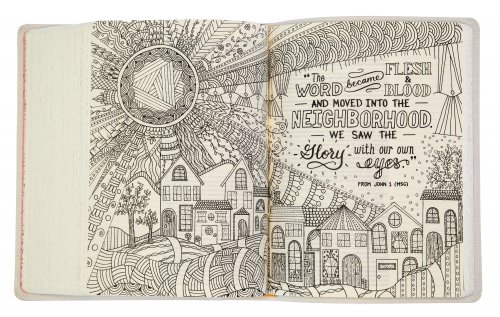 "The FLESH
WORD became &
BLOOD
AND MOVED INTO THE
NEIGHBORHOOD.
WE SAW THE
Glory, with our own
eyes,"
FROM JOHN 1 (MSG)